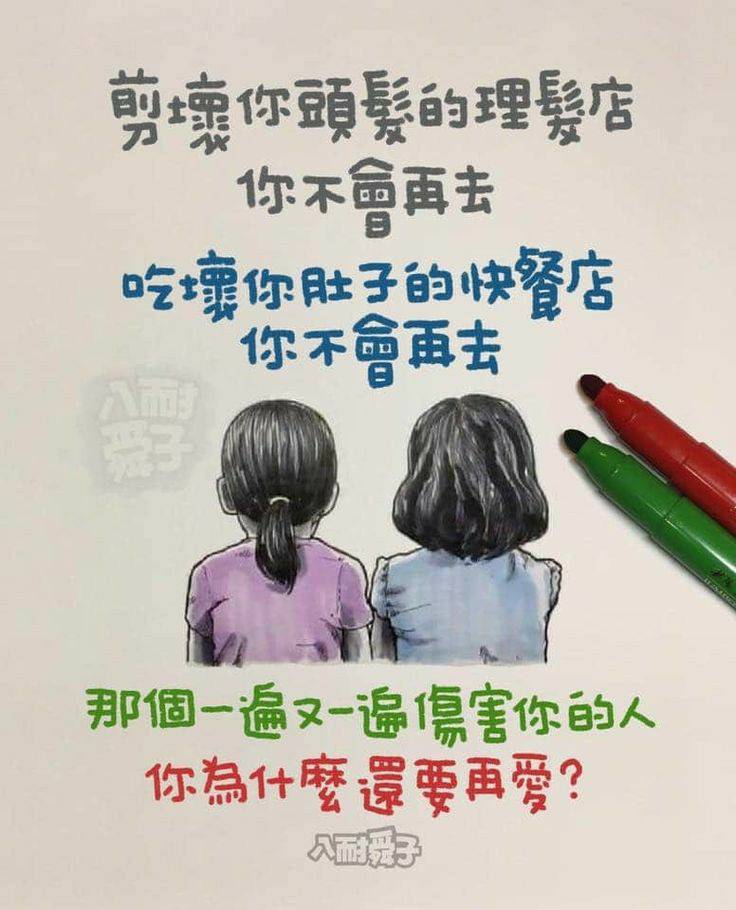 剪壞你頭髮的理髮店
你不會再去
吃壞你肚子的快餐店
你不會再去
八耐
舜子
那個一遍又一遍傷害你的人
你為什麼還要再愛?
八耐舜子